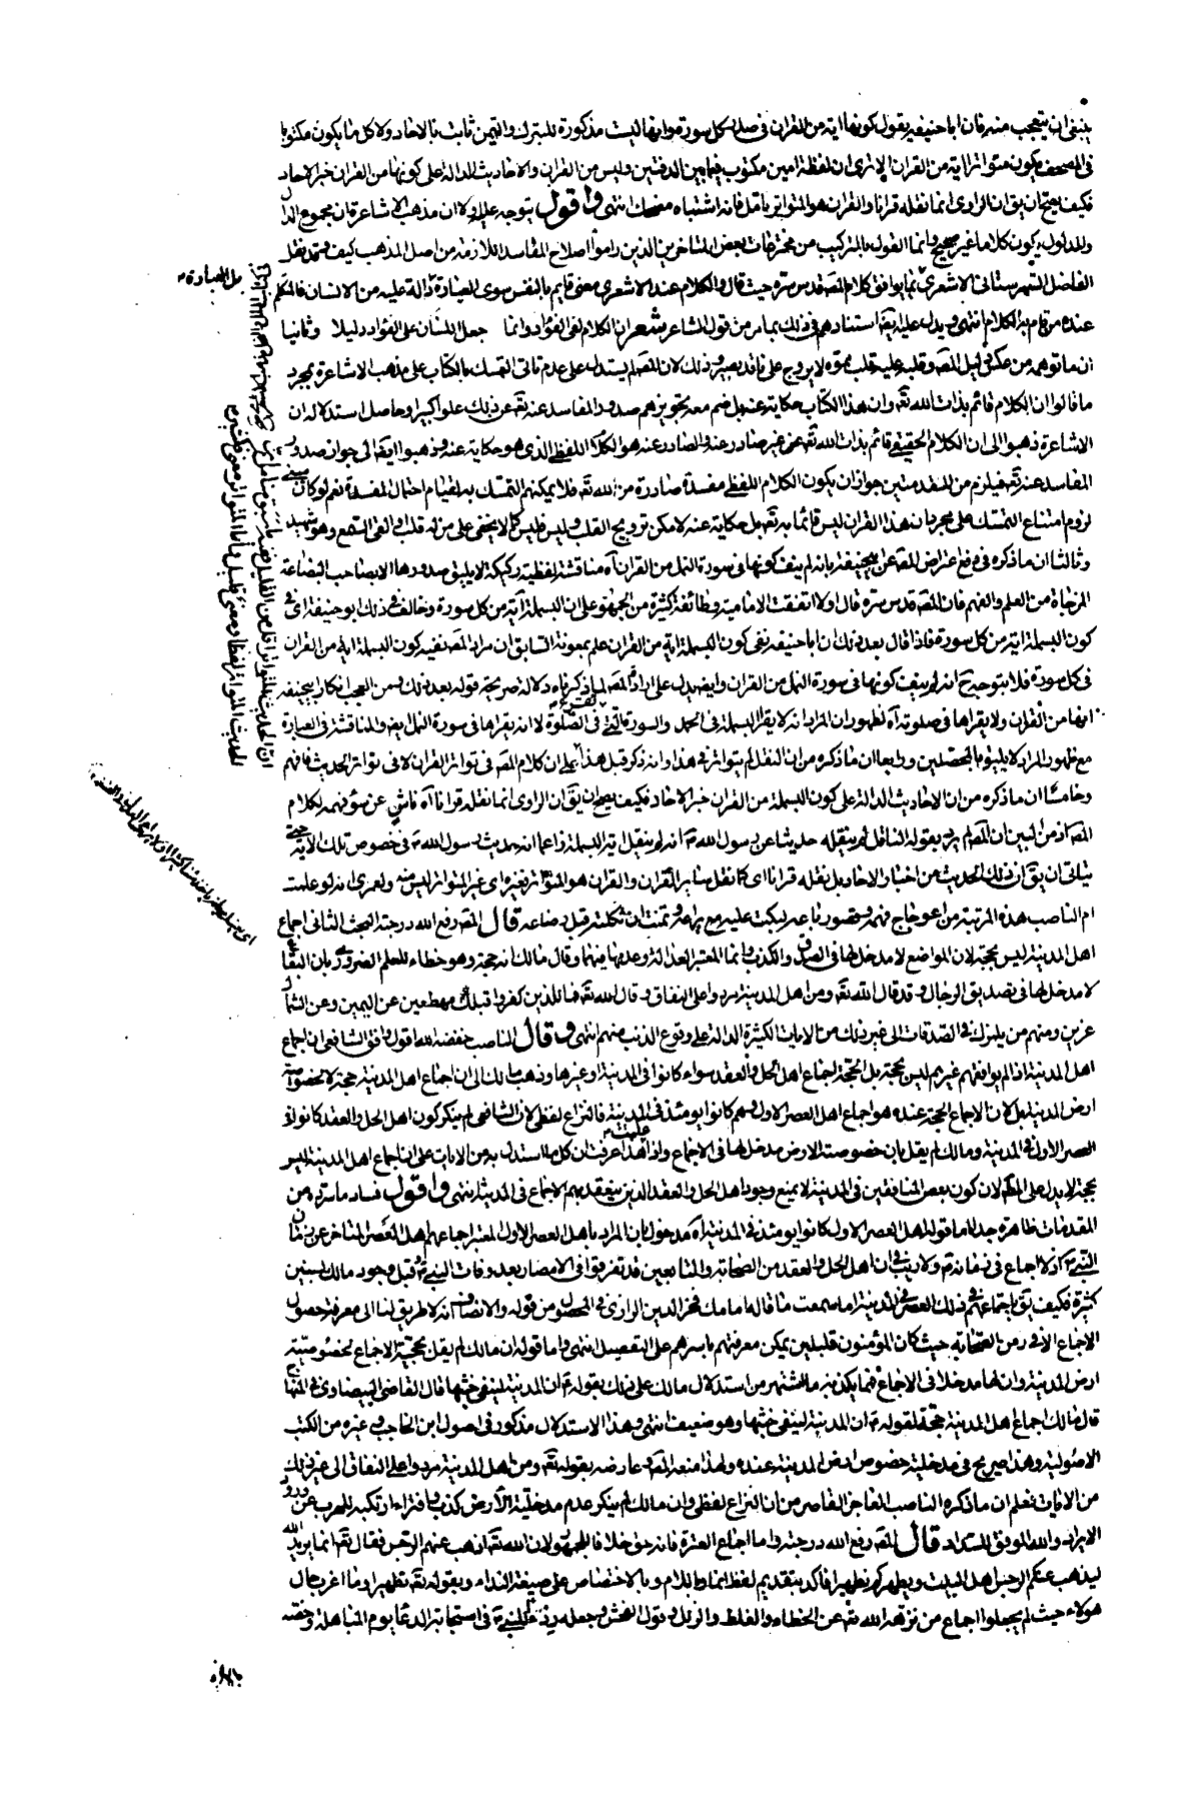 ينبغى ان يتعجب منه فان ابا حنيفة يقول كونها اية من القران فى صدر كل سورة موانها ليست مذكورة للتبرك والتيمن ثابت بالاحاد ولا كل ما يكون مكتوبا
فى المصحف يكون متواترا اية من القران الا ترى ان لفظة امين مكتوب فيما بين الدفتين وليس من القران والاحاديث الدالة على كونها من القران خبر الاحاد
فكيف يصح ان يق ان الراوى انما نقله قرانا والقران هو المتواتر تامل فانه اشتباه مضحك انتهى واقول يتوجه عليه اولا ان مذهب الاشاعرة ان مجموع الدال
والمدلول يكون كلاما غير صحيح وانما القول بالتركيب من مخترعات بعض المتاخرين الذين راموا اصلاح المفاسد اللازمة من اصل المذهب كيف وقد نقل
الفاضل الشهرستانى الاشعرى ما يوافق كلام المصنف قدس سره حيث قال والكلام عند الاشعرى معنى قايم بالنفس سوى العبارة دالة عليه من الانسان فالمتكلم
بل العبارة
عنده من قام به الكلام انتهى ويدل عليه ايضا استنادهم فى ذلك بما مر من قول الشاعر شعر ان الكلام لفى الفؤاد وانما جعل اللسان على الفؤاد دليلا وثانيا
ان ما توهمه من عكس دليل المص وقلبه عليه قلب مموه لا يروج على ناقد بصير وذلك لان المص لم يستدل على عدم تاتى التمسك بالكتاب على مذهب الاشاعرة بمجرد
ما قالوا ان الكلام قائم بذات الله تعه وان هذا الكتاب حكاية عنه بل ضم معه تجويزهم صدور المفاسد عنه تعه عن ذلك علوا كبيرا وحاصل استدلاله ان
الاشاعرة ذهبوا الى ان الكلام الحقيقى قائم بذات الله تعه غير صادر عنه والصادر عنه هو الكلام اللفظى الذى هو حكاية عنه وذهبوا ايضا الى جواز صدور
المفاسد عنه تعه فيلزم من المقدمتين جواز ان يكون الكلام اللفظى مفسدة صادرة من الله تعه فلا يمكنهم التمسك به لقيام احتمال المفسدة نعم لو كان مبنى
لزوم امتناع التمسك على مجرد ان هذا القران ليس قائما به تعه بل حكاية عنه لامكن ترويج القلب وليس فليس كما لا يخفى على من له قلب او القى السمع وهو شهيد
وثالثا ان ما ذكره فى دفع اعتراض المص عن ابيحنيفة بانه لم ينف كونها فى سورة النمل من القران اه مناقشة لفظية ركيكة لا يليق صدورها الا بصاحب البضاعة
المزجاة من العلم والفهم فان المص قدس سره قال اولا اتفقت الامامية وطائفة كثيرة من الجمهور على ان البسملة آية من كل سورة وخالف فى ذلك ابو حنيفة اى فى
كون البسملة اية من كل سورة فلذا قال بعد ذلك ان ابا حنيفة نفى كون البسملة اية من القران علم بمعونة السابق ان مراد المص نفيه كون البسملة اية من القران
فى كل سورة فلا يتوجه انه لم ينف كونها فى سورة النمل من القران وايضا يدل على ارادة المص لما ذكرناه دلالة صريحة قوله بعد ذلك ومن العجب انكار ابيحنيفة
انها من القران ولا يقراها فى صلوته اه لظهور ان المراد انه لا يقرا البسملة فى الحمد والسورة التى تقرء فى الصلوة لا انه يقراها فى سورة النمل ايضا والمناقشة فى العبارة
مع ظهور المراد لا يليق بالمحصلين ورابعا ان ما ذكره من ان النقل لم يتواتر فى هذا وانه ذكر قبل هذا على ان كلام المص فى تواتر القران لا فى تواتر الحديث فافهم
وخامسا ان ما ذكره من ان الاحاديث الدالة على كون البسملة من القران خبر الاحاد فكيف يصح ان يق ان الراوى انما نقله قرانا آه ناش عن سوء فهمه لكلام
المص اذ من البين ان المص لم يرد بقوله الناقل لم ينقله حديثا عن رسول الله ص انه لم ينقل اية البسملة زاعما انه حديث رسول الله ص فى خصوص تلك الاية حتى
يتاتى ان يق ان ذلك الحديث من اخبار الاحاد بل نقله قرانا اى كما نقل ساير القران والقران هو المتواتر فغيره اى غير المتواتر ليس منه ولعمرى انه لو علمت
ام الناصب هذه المرتبة من اعوجاج فهمه وقصور باعه لبكت عليه مع وتمنت ان ثكلته قبل رضاعه قال المص رفع الله درجته البحث الثانى اجماع
اهل المدينة ليس بحجة لان المواضع لا مدخل لها فى الصدق والكذب وانما المعتبر العدالة وعدمها فيهما وقال مالك انه حجة وهو خطاء للعلم الضرورى بان البقاع
لا مدخل لها فى تصديق الرجال وقد قال الله تعه ومن اهل المدينة مردوا على النفاق وقال الله تعه فما للذين كفروا قبلك مهطعين عن اليمين وعن الشمال
عزين ومنهم من يلمزك فى الصدقات الى غير ذلك من الايات الكثيرة الدالة على وقوع الذنب منهم انتهى وقال الناصب خفضه الله اقول وافق الشافعى ان اجماع
اهل المدينة اذا لم يوافقهم غيرهم ليس بحجة بل الحجة اجماع اهل الحل والعقد سواء كانوا فى المدينة او غيرها وذهب مالك الى ان اجماع اهل المدينة حجة لا لخصوصية
ارض المدينة بل لان الاجماع الحجة عنده هو اجماع اهل العصر الاول وهم كانوا يومئذ فى المدينة فالنزاع لفظى لان الشافعى لم ينكر كون اهل الحل والعقد كانوا فى
العصر الاول فى المدينة ومالك لم يقل بان خصوصية الارض مدخل لها فى الاجماع واذا علمت هذا عرفت ان كل ما استدل به من الايات على ان اجماع اهل المدينة ليس
بحجة لا يدل على المدعى لان كون بعض المنافقين فى المدينة لا يمنع وجود اهل الحل والعقد الذين ينعقد بهم الاجماع فى المدينة انتهى واقول فساد ما سرده من
المقدمات ظاهرة جدا اما قوله اهل العصر الاول كانوا يومئذ فى المدينة آه مدخول بان المراد باهل العصر الاول المعتبر اجماعهم اهل العصر المتاخر عن زمان
النبى ص اذ لا اجماع فى زمانه ص ولا ريب فى ان اهل الحل والعقد من الصحابة والتابعين قد تفرقوا فى الامصار بعد وفات النبى ص قبل وجود مالك بسنين
كثيرة فكيف يق باجتماعهم فى ذلك العصر فى المدينة اما سمعت ما قاله امامك فخر الدين الرازى فى المحصول من قوله والانصاف انه لا طريق لنا الى معرفة حصول
الاجماع الا فى زمن الصحابة حيث كان المؤمنون قليلين يمكن معرفتهم باسرهم على التفصيل انتهى واما قوله ان مالك لم يقل بحجية الاجماع لخصوصية
ارض المدينة وان لها مدخلا فى الاجماع فمما يكذبه ما اشتهر من استدلال مالك على ذلك بقوله ص ان المدينة لينفى خبثها قال القاضى البيضاوى فى المنهاج
قال مالك اجماع اهل المدينة حجة لقوله ص ان المدينة لينفى خبثها وهو ضعيف انتهى وهذا الاستدلال مذكور فى اصول ابن الحاجب وغيره من الكتب
الاصولية وهذا صريح فى مدخلية خصوص ارض المدينة عنده ولهذا منعه المص وعارضه بقوله تعه ومن اهل المدينة مردوا على النفاق الى غير ذلك
من الايات فعلم ان ما ذكره الناصب الفاجر القاصر من ان النزاع لفظى وان مالك لم ينكر عدم مدخلية الارض كذب وافتراء ارتكبه للهرب عن ورود
الايراد والله الموفق للسداد قال المص رفع الله درجته واما اجماع العترة فانه حق خلافا للجمهور لان الله تعه اذهب عنهم الرجس فقال تعه انما يريد الله
ليذهب عنكم الرجس اهل البيت ويطهركم تطهيرا فاكد بتقديم لفظ انما وباللام وبالاختصاص على صيغة النداء وبقوله تعه تطهيرا وما اغرب حال
هولاء حيث لم يجعلوا اجماع من نزهه الله تعه عن الخطاء والغلط والزلل وقول الفحش وجعله رديف النبى ص فى استجابة الدعا يوم المباهلة وخصه